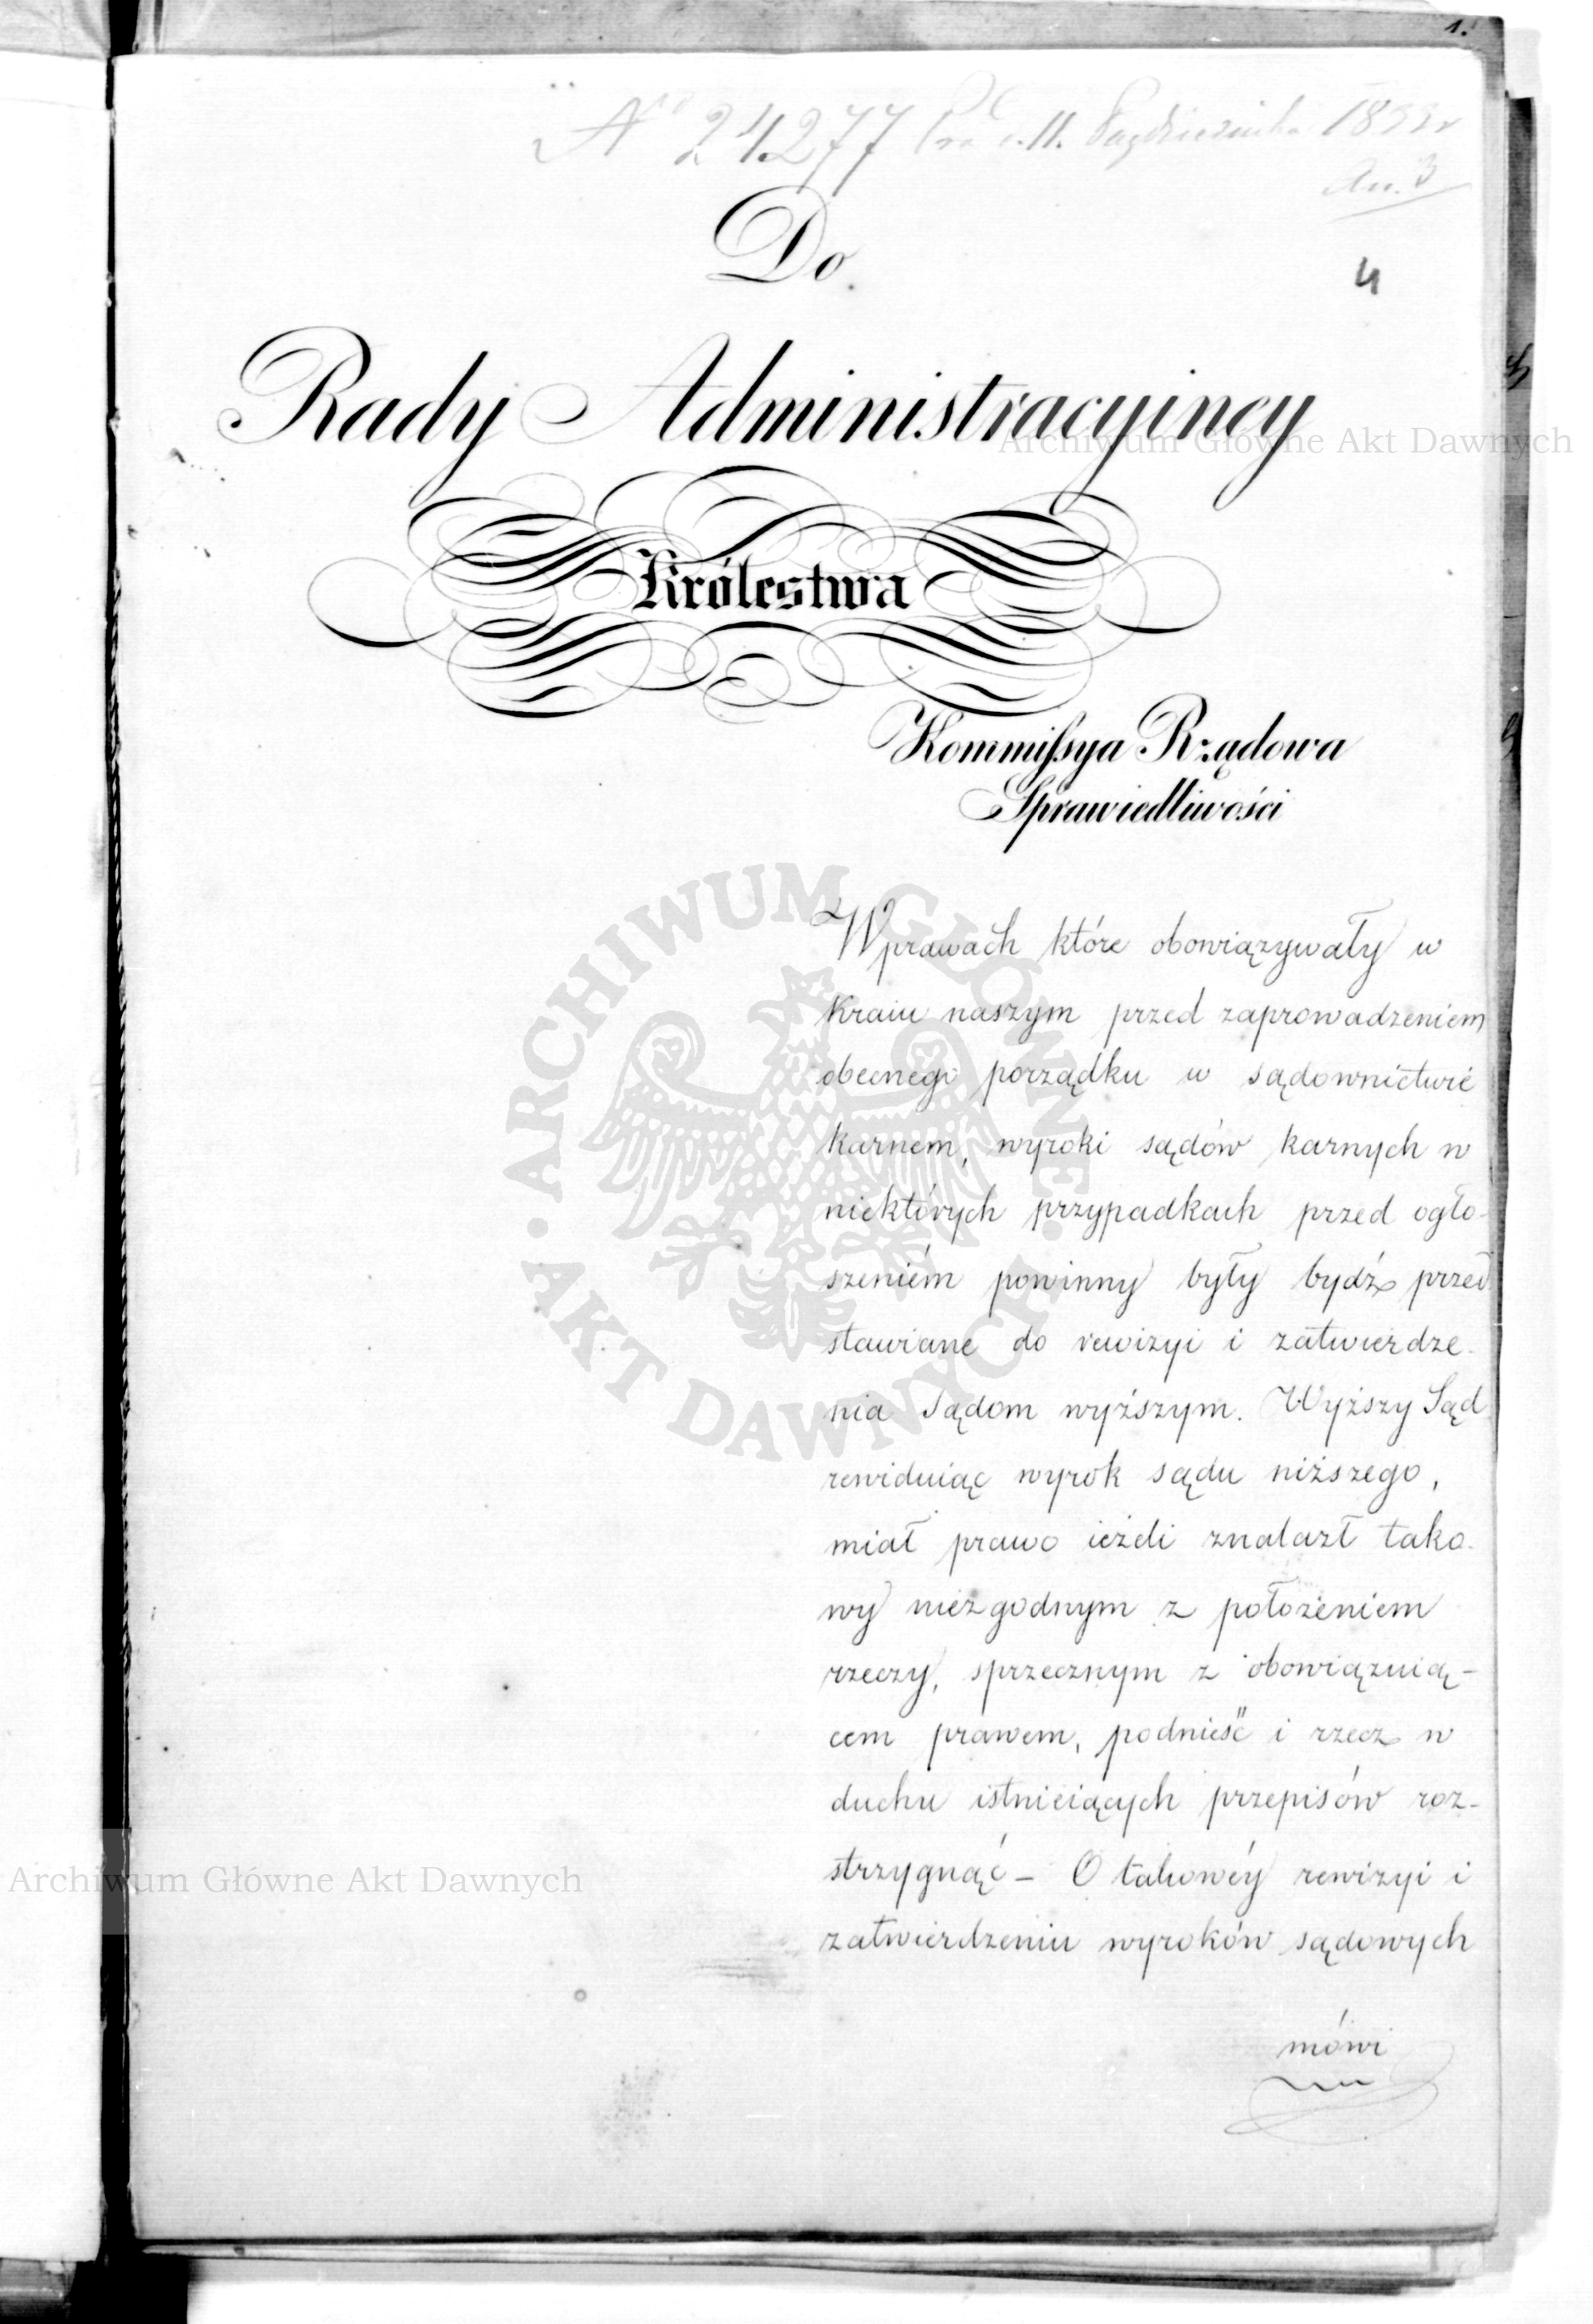 1.
No 24277 11. Października
An. 3
Do
4
Rady Administracyiney
Archiwum Główne Akt Dawnych
Królestwa
Kommissya Rządowa
Sprawiedliwości
ARCHIWUM GŁÓWNE AKT DAWNYCH
W prawach które obowiązywały w
kraiu naszym przed zaprowadzeniem
obecnego porządku w sądownictwie
karnem, wyroki sądów karnych w
niektórych przypadkach przed ogło-
szeniém powinny były bydź przed
stawiane do rewizyi i zatwierdze-
nia Sądom wyższym. Wyższy Sąd
rewiduiąc wyrok sądu niższego,
miał prawo ieżeli znalazł tako-
wy niezgodnym z położeniem
rzeczy, sprzecznym z obowiązuią-
cem prawem, podnieść i rzecz w
duchu istnieiących przepisów roz-
strzygnąć - O takowéy rewizyi i
Archiwum Główne Akt Dawnych
zatwierdzeniu wyroków sądowych
mówi